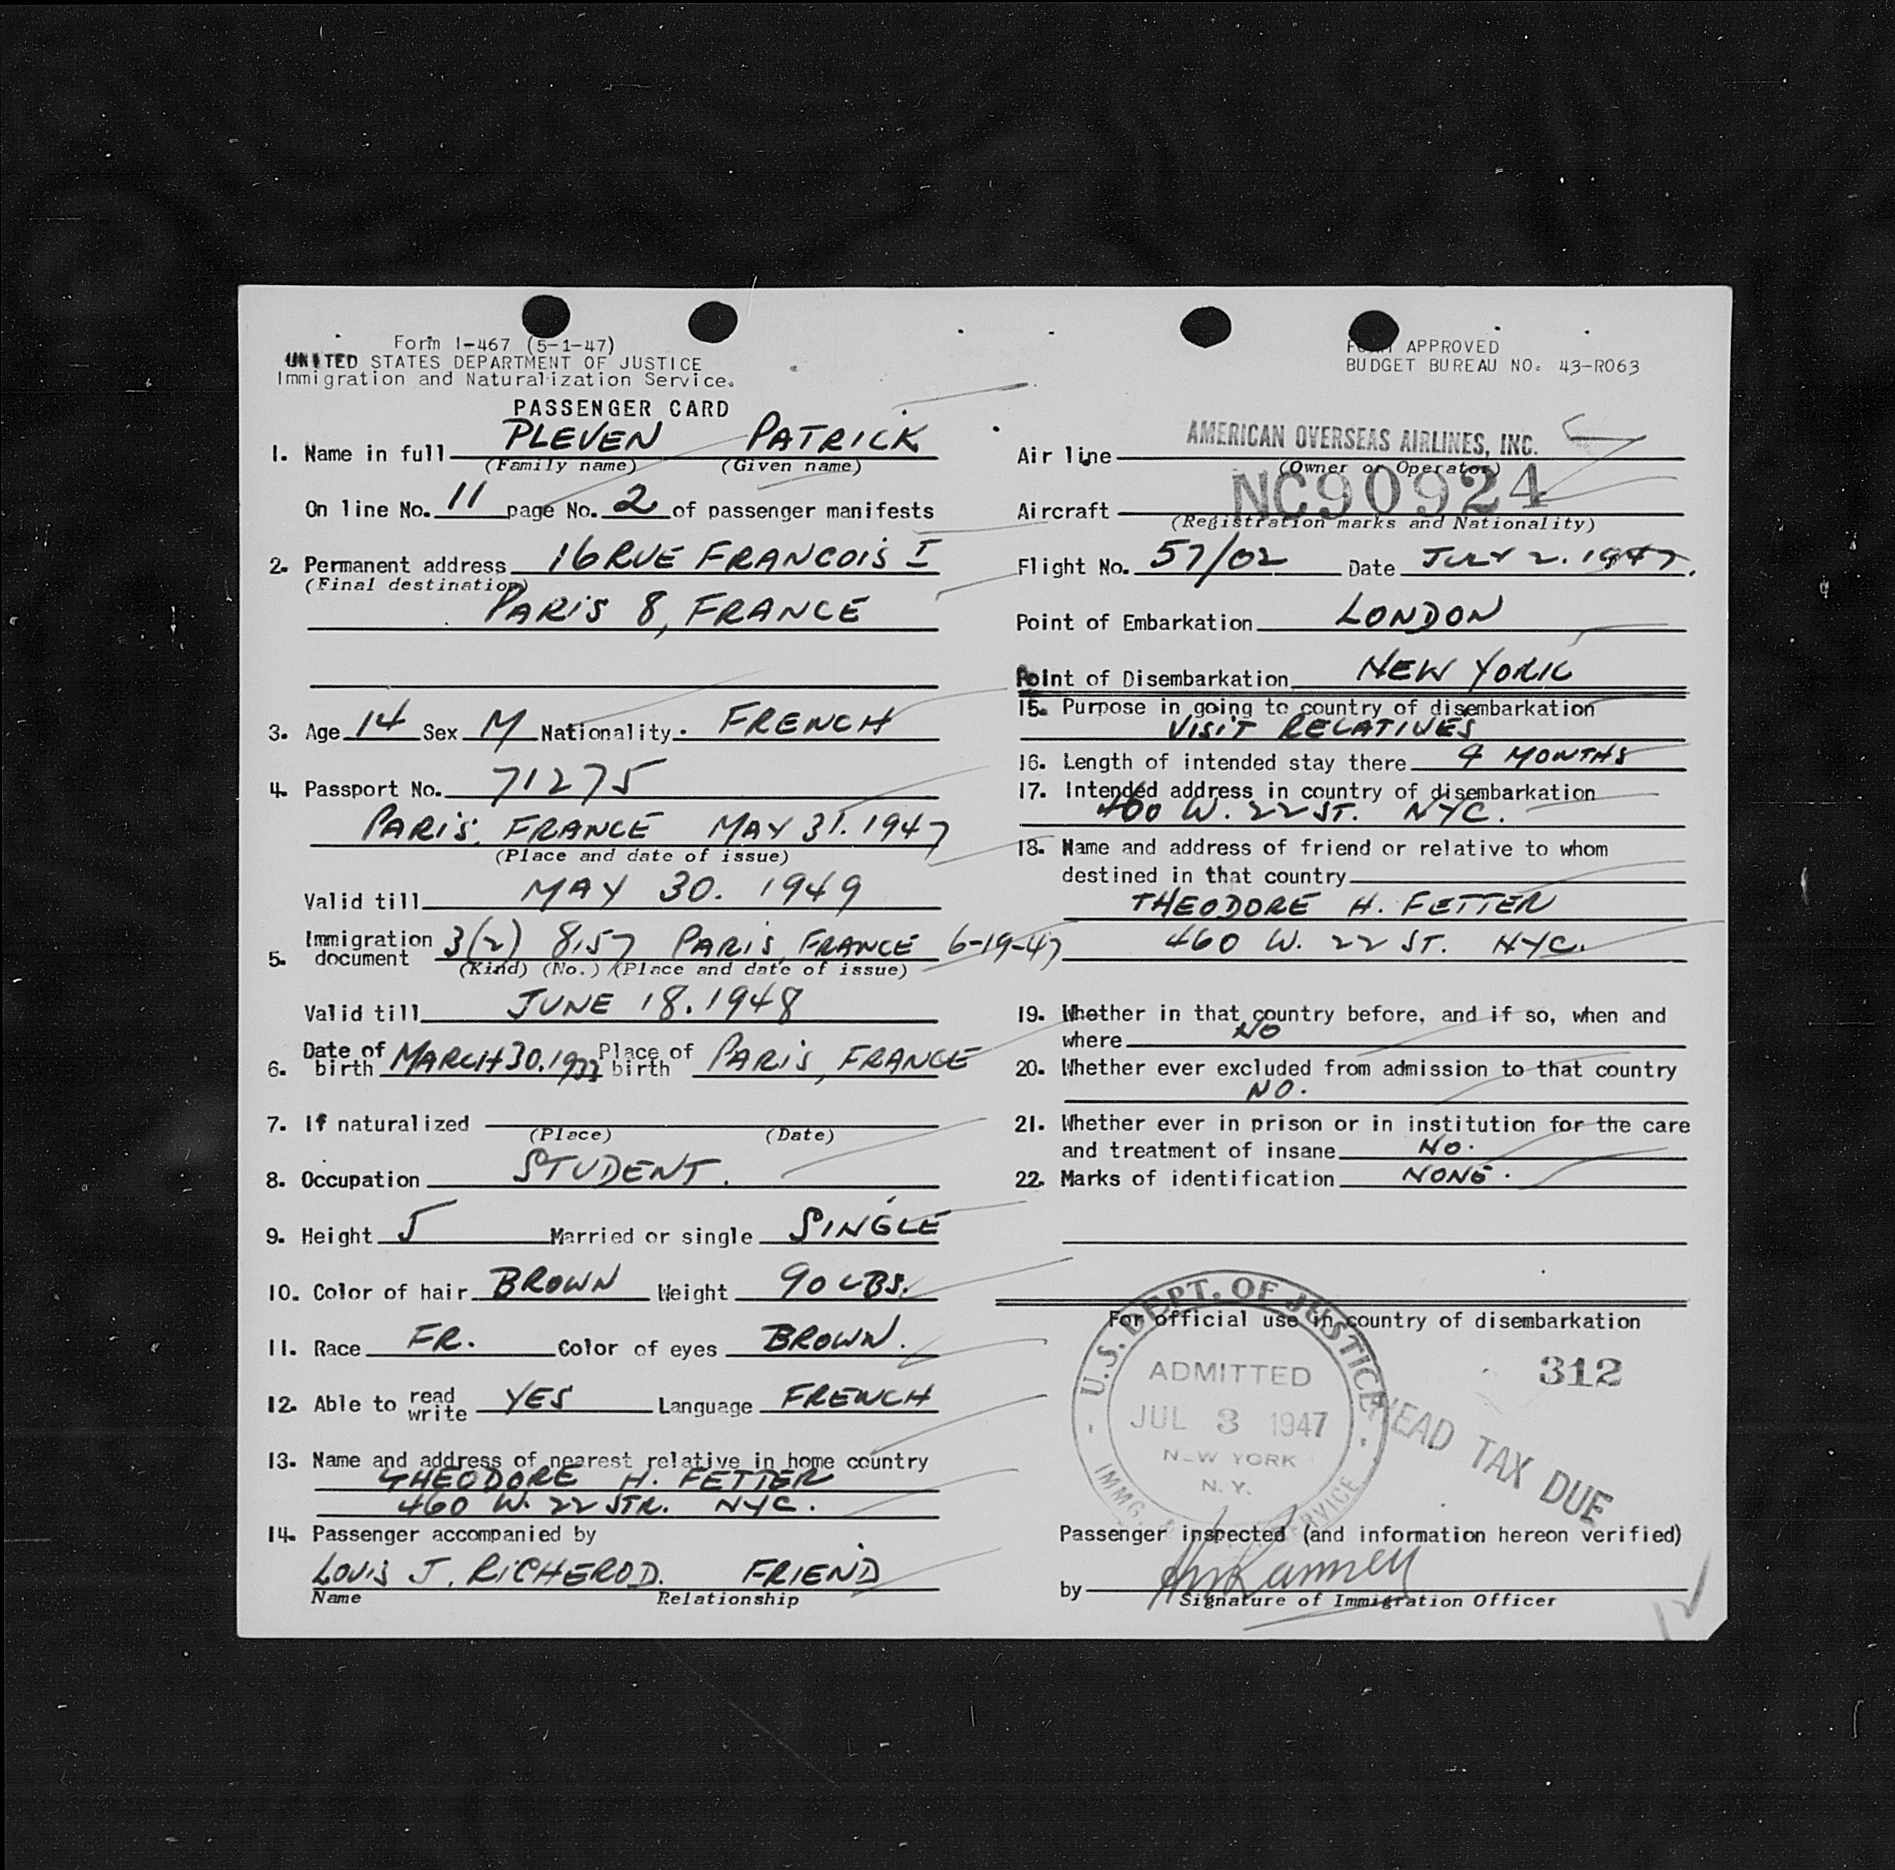 Form I-467 (5-1-47)
UNITED STATES DEPARTMENT OF JUSTICE
Immigration and Naturalization Service.
PASSENGER CARD
1. Name in full PLEVEN PATRICK
(Family name) (Given name)
On line No. 11 page No. 2 of passenger manifests
2. Permanent address 16 RUE FRANCOIS I
(Final destination)
PARIS 8, FRANCE
3. Age 14 Sex M Nationality. FRENCH
4. Passport No. 71275
PARIS, FRANCE MAY 31. 1947
(Place and date of issue)
Valid till MAY 30. 1949
5. Immigration document 3(2) 8,57 PARIS, FRANCE 6-19-47
(Kind) (No.) (Place and date of issue)
Valid till JUNE 18. 1948
6. Date of birth MARCH 30. 1933 Place of birth PARIS, FRANCE
7. If naturalized
(Place) (Date)
8. Occupation STUDENT.
9. Height 5 Married or single SINGLE
10. Color of hair BROWN Weight 90 LBS.
11. Race FR. Color of eyes BROWN.
12. Able to read write YES Language FRENCH
13. Name and address of nearest relative in home country
THEODORE H. FETTER
460 W. 22 STR. NYC.
14. Passenger accompanied by
LOUIS J. RICHEROD. FRIEND
Name Relationship
FORM APPROVED
BUDGET BUREAU NO. 43-R063
Air line AMERICAN OVERSEAS AIRLINES, INC.
(Owner or Operator)
Aircraft NC90924
(Registration marks and Nationality)
Flight No. 57/02 Date JULY 2. 1947.
Point of Embarkation LONDON
Point of Disembarkation NEW YORK
15. Purpose in going to country of disembarkation
VISIT RELATIVES
16. Length of intended stay there 4 MONTHS
17. Intended address in country of disembarkation
460 W. 22 ST. NYC.
18. Name and address of friend or relative to whom
destined in that country
THEODORE H. FETTER
460 W. 22 ST. NYC.
19. Whether in that country before, and if so, when and
where NO
20. Whether ever excluded from admission to that country
NO.
21. Whether ever in prison or in institution for the care
and treatment of insane NO.
22. Marks of identification NONE.
For official use in country of disembarkation
U.S. DEPT. OF JUSTICE
ADMITTED
JUL 3 1947
NEW YORK
N.Y.
IMMG. SERVICE
312
HEAD TAX DUE
Passenger inspected (and information hereon verified)
by
Signature of Immigration Officer